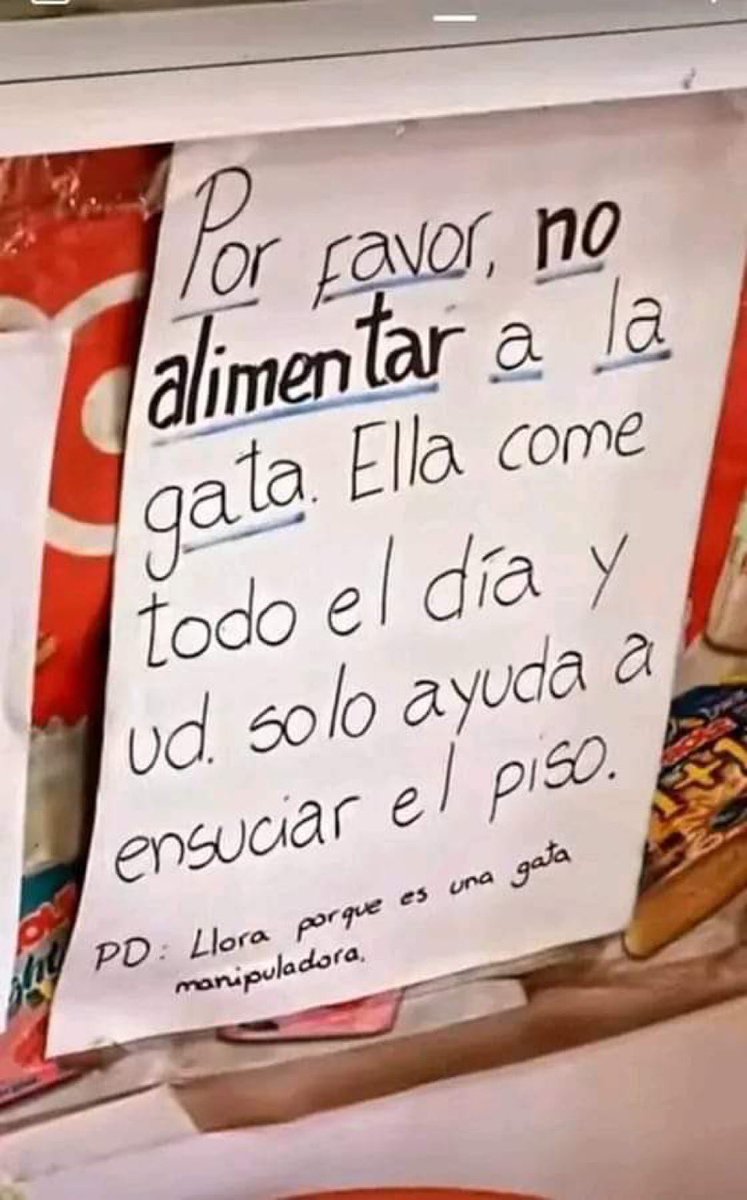 Por Favor, no
alimentar a la
gata. Ella come
todo el día y
ud. solo ayuda a
ensuciar el piso.
PD: Llora porque es una gata
manipuladora.
1+1